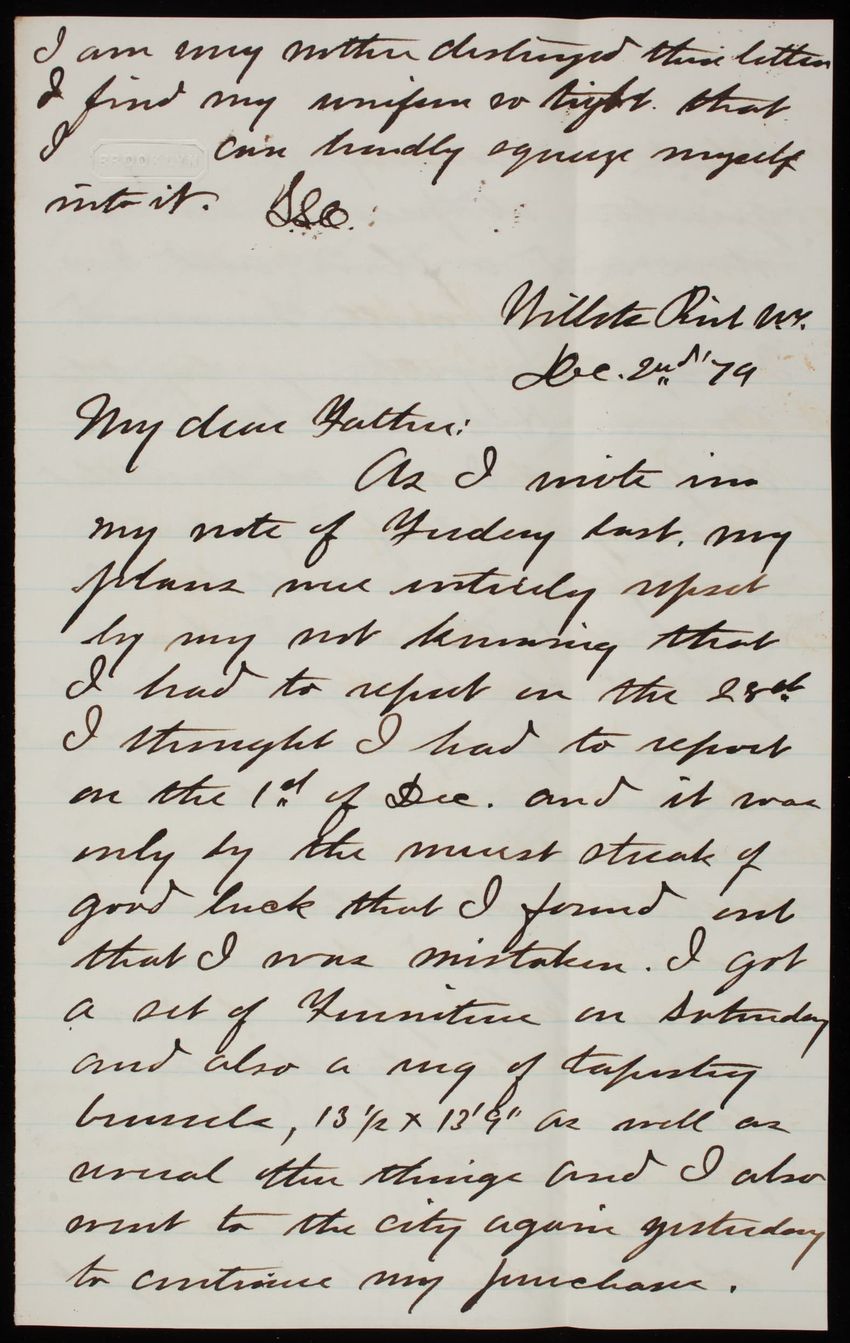 I am very mother destroyed these letters
I find my uniform so tight that
I can hardly squeeze myself
BROOKLYN
into it.
Willets Point N.Y.
Dec. 2nd '79
My dear Father:
As I wrote in
my note of Friday last, my
plans were entirely upset
by my not knowing that
I had to report on the 28th
I thought I had to report
on the 1st of Dec. and it was
only by the merest streak of
good luck that I found out
that I was mistaken. I got
a set of Furniture on Saturday
and also a rug of tapestry
brussels, 13 1/2 x 13'9" as well as
several other things and I also
went to the city again yesterday
to continue my purchase.